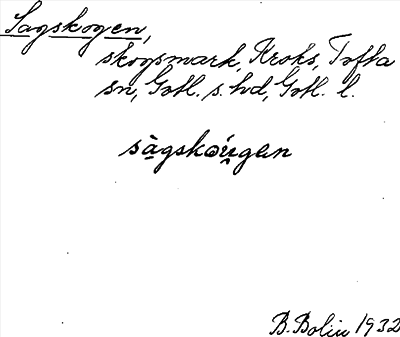 Sagskogen,
skogsmark, Kroks, Tofta
sn, Gotl. s. hd, Gotl. l.
sàgskǝu̯gan
B. Bolin 1932